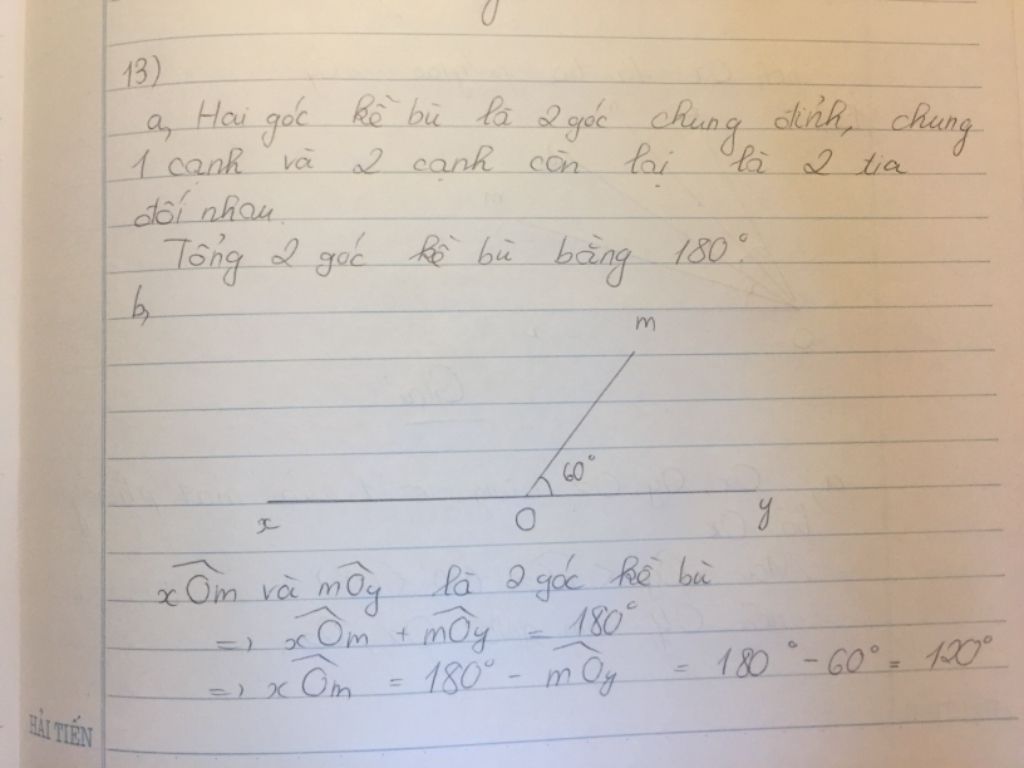 13)
a, Hai góc kề bù là 2 góc chung đỉnh, chung
1 cạnh và 2 cạnh còn lại là 2 tia
đối nhau.
Tổng 2 góc kề bù bằng 180°.
b,
m
60°
x O y
xÔm và mÔy là 2 góc kề bù
=> xÔm + mÔy = 180°
=> xÔm = 180° - mÔy = 180° - 60° = 120°
HẢI TIẾN